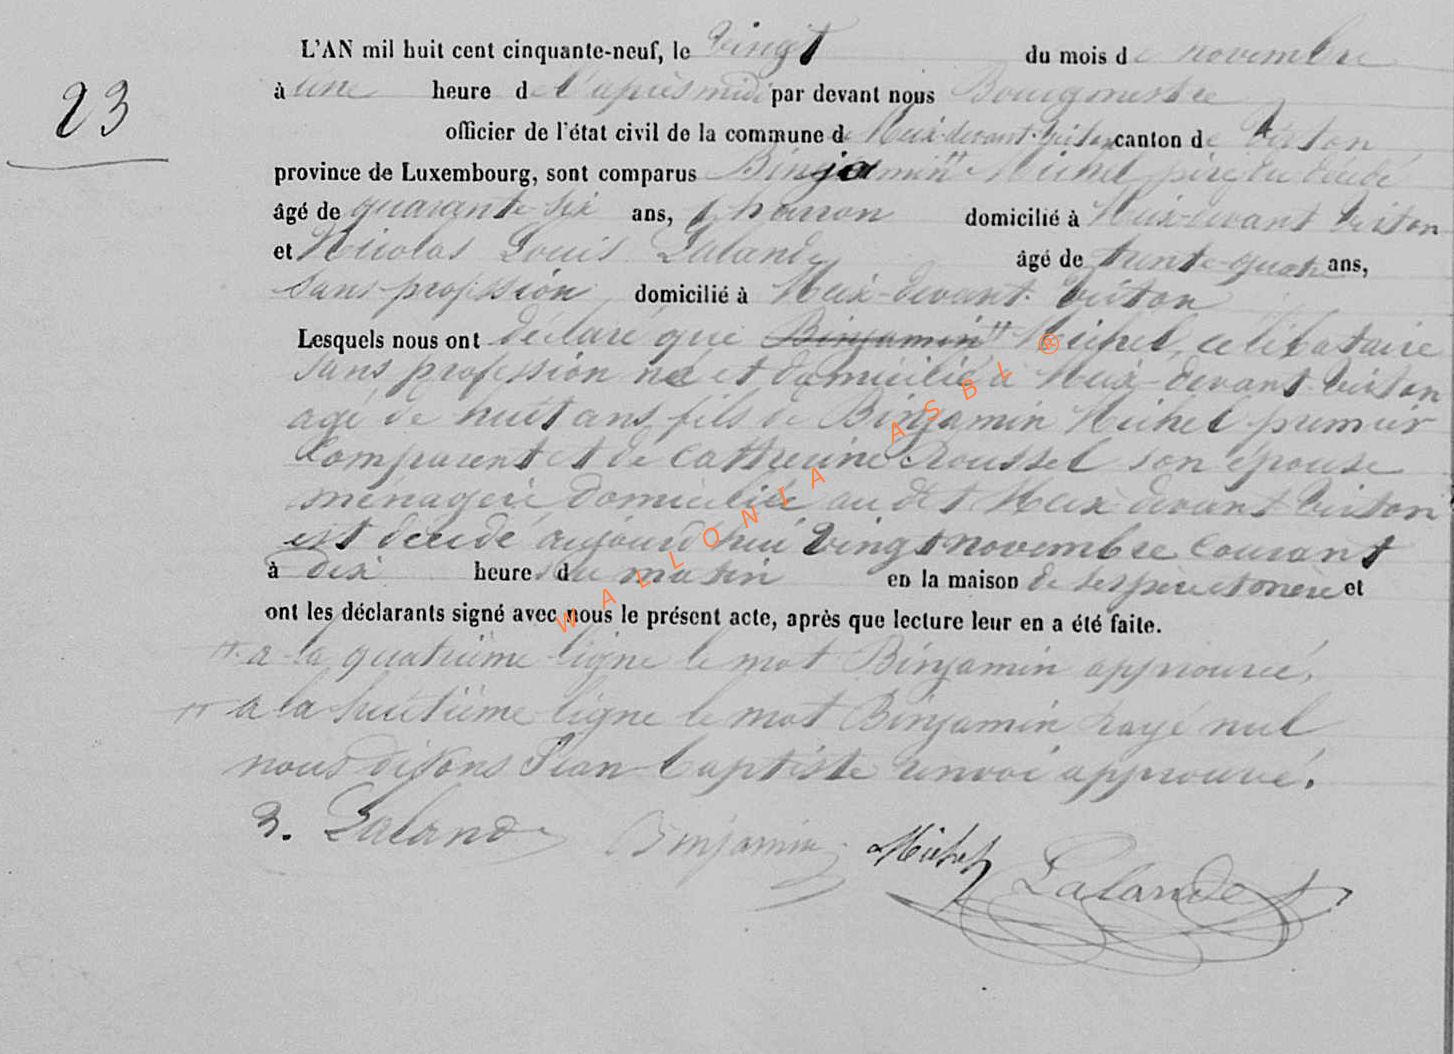 23
L'AN mil huit cent cinquante-neuf, le vingt du mois de novembre
à une heure de l'après midi par devant nous Bourgmestre
officier de l'état civil de la commune de Meix-devant-Virton canton de Virton
province de Luxembourg, sont comparus Binjamin " Michel père du décédé
âgé de quarante-six ans, charron domicilié à Meix-devant Virton
et Nicolas Louis Lalande âgé de trente-quatre ans,
sans profession domicilié à Meix-devant-Virton
Lesquels nous ont déclaré que Binjamin " Michel, celibataire
sans profession né et domicilié à Meix-devant-Virton
agé de huit ans fils de Binjamin Michel premier
Comparent et de Catherine Roussel son épouse
ménagère domiciliée au dit Meix-devant Virton
est decedé aujourd'hui vingt novembre courant
à dix heures du matin en la maison de ses père et mère et
ont les déclarants signé avec nous le présent acte, après que lecture leur en a été faite.
" a la quatrième ligne le mot Binjamin approuvé,
" a la huitième ligne le mot Binjamin rayé nul
nous disons Jean-baptiste renvoi approuvé.
Lalande Binjamin Michel Lalande
WALLONIA ASBL ®